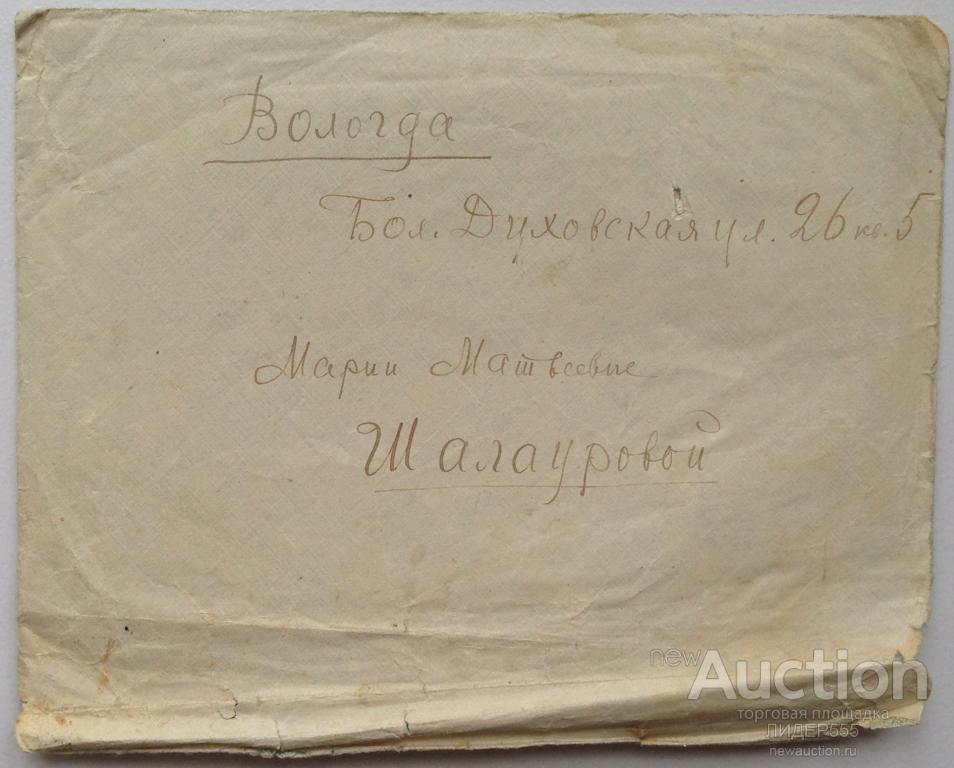 Вологда
Бол. Духовская ул. 26 кв. 5
Марии Матвеевне
Шалауровой
newAuction
торговая площадка
ЛИДЕР555
newauction.ru